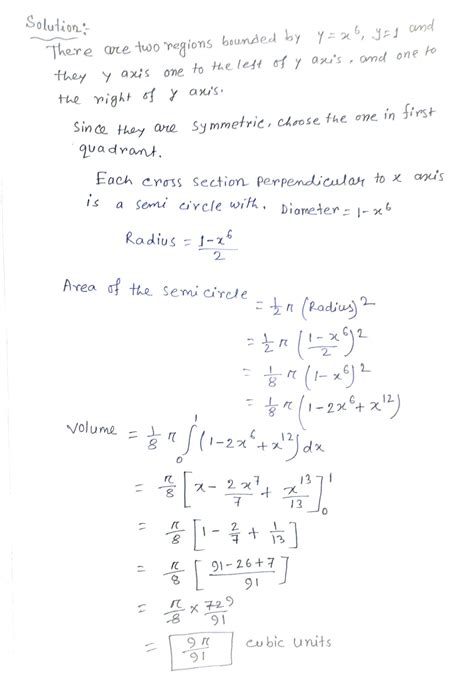 Solution:-
There are two regions bounded by y = x⁶, y = 1 and
they y axis one to the left of y axis, and one to
the right of y axis.
Since they are symmetric, choose the one in first
quadrant.
Each cross section perpendicular to x axis
is a semi circle with. Diameter = 1-x⁶
Radius = (1-x⁶)/2
Area of the semicircle = 1/2 π (Radius)²
= 1/2 π ((1-x⁶)/2)²
= 1/8 π (1-x⁶)²
= 1/8 π (1-2x⁶+x¹²)
Volume = 1/8 π ∫₀¹ (1-2x⁶+x¹²) dx
= π/8 [x - 2x⁷/7 + x¹³/13]₀¹
= π/8 [1 - 2/7 + 1/13]
= π/8 [(91-26+7)/91]
= π/8 × 729/91
= 9π/91 cubic units